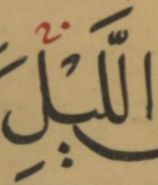 الَّيْلِ